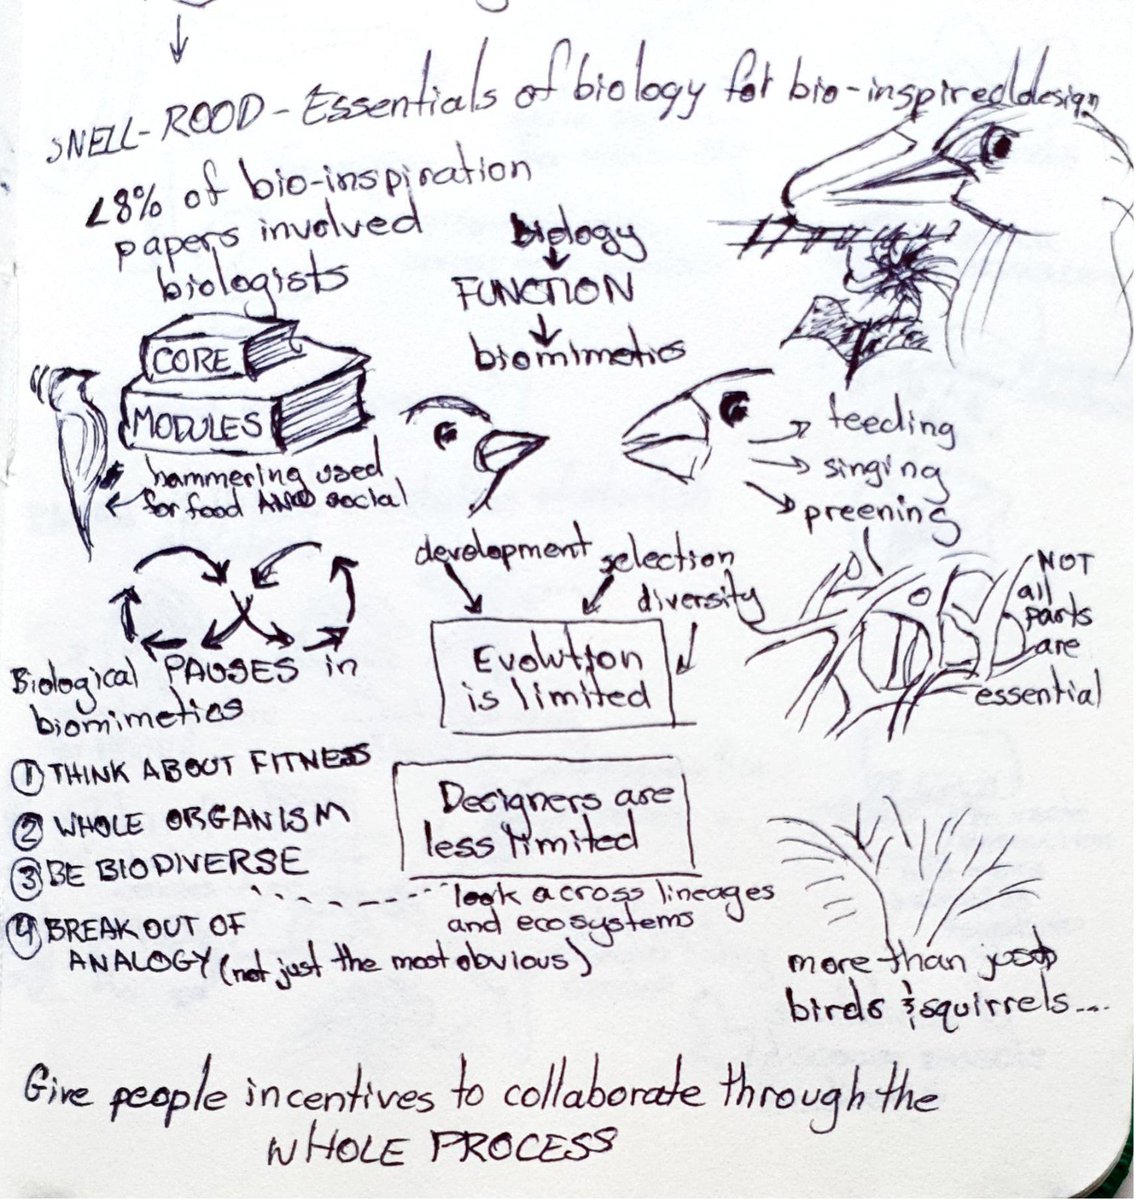 SNELL-ROOD - Essentials of biology for bio-inspired design
<8% of bio-inspiration
papers involved
biologists
biology
FUNCTION
biomimetics
CORE
MODULES
hammering used
for food AND social
feeding
singing
preening
development
selection
diversity
Evolution
is limited
NOT
all
parts
are
essential
Biological PAUSES in
biomimetics
① THINK ABOUT FITNESS
② WHOLE ORGANISM
③ BE BIODIVERSE
④ BREAK OUT OF
ANALOGY (not just the most obvious)
Designers are
less limited
look across lineages
and ecosystems
more than just
birds & squirrels...
Give people incentives to collaborate through the
WHOLE PROCESS